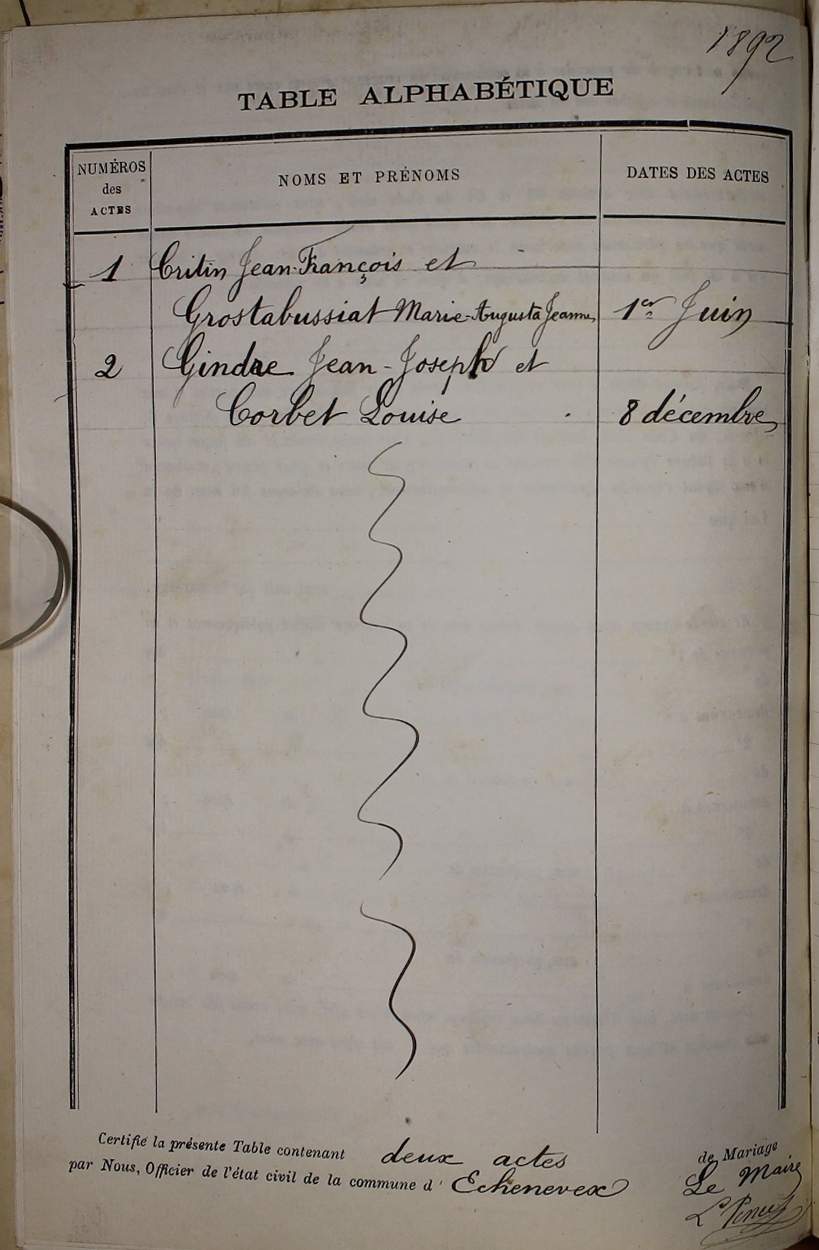 1892
TABLE ALPHABÉTIQUE
NUMÉROS
des
ACTES
NOMS ET PRÉNOMS
DATES DES ACTES
1 Critin Jean-François et
Grostabussiat Marie-Augusta Jeanne 1er Juin
2 Gindre Jean-Joseph et
Corbet Louise 8 décembre
Certifié la présente Table contenant deux actes de Mariage
par Nous, Officier de l'état civil de la commune d'Echenevex Le Maire